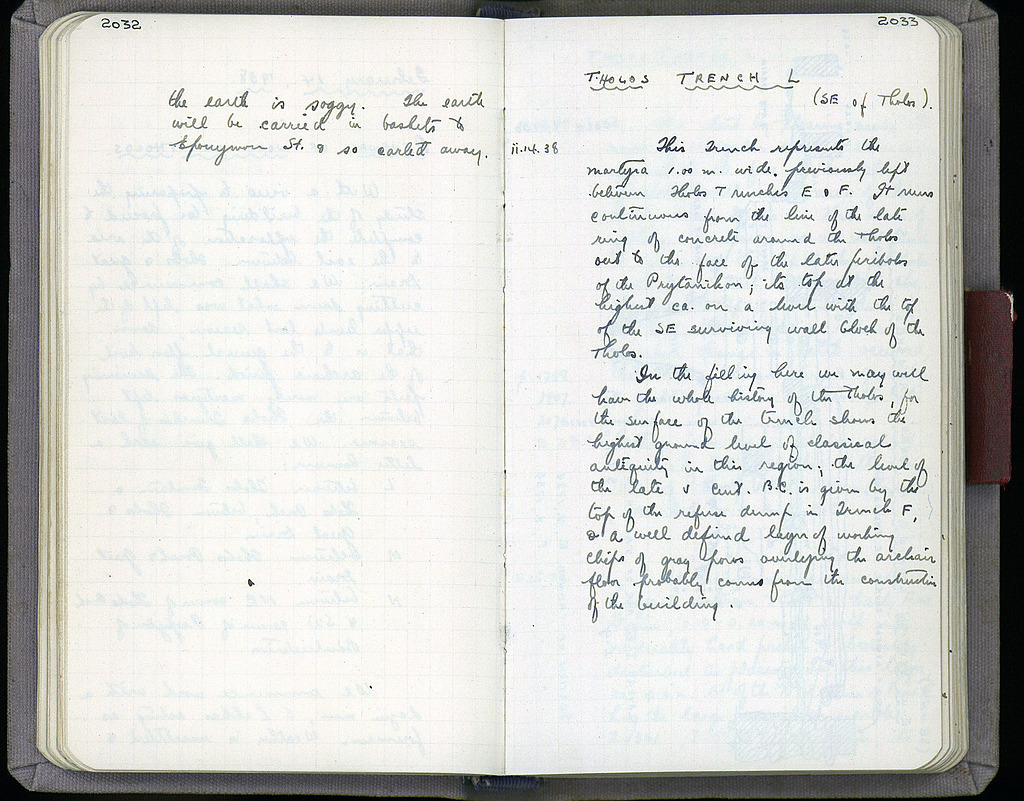 2032
the earth is soggy. The earth
will be carried in baskets to
Eponymon St. & so carted away.
2033
THOLOS TRENCH L
(SE of Tholos).
ii.14.38
This Trench represents the
martyra 1.00 m. wide, previously left
between Tholos Trenches E & F. It runs
continuous from the line of the late
ring of concrete around the Tholos
out to the face of the later peribolos
of the Prytanikon; its top at the
highest ca. on a level with the top
of the SE surviving wall block of the
Tholos.
In the filling here we may well
have the whole history of the Tholos, for
the surface of the trench shows the
highest ground level of classical
antiquity in this region; the level of
the late v cent. B.C. is given by the
top of the refuse dump in Trench F,
& a well defined layer of working
chips of gray poros overlying the archaic
floor probably comes from the construction
of the building.